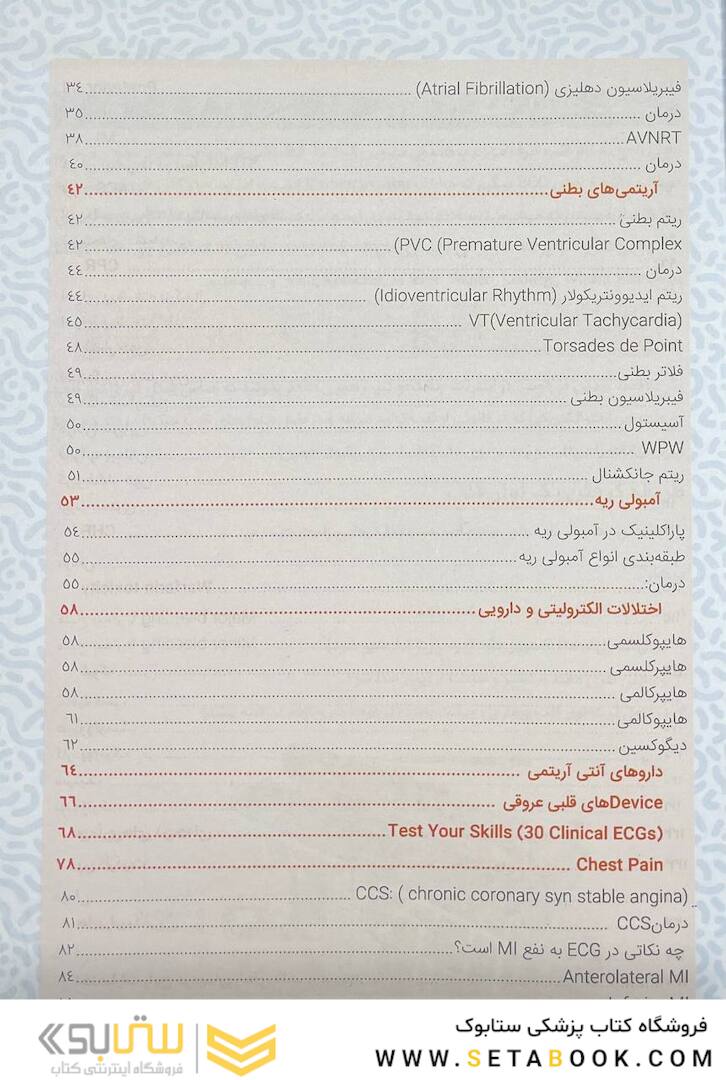 فیبریلاسیون دهلیزی (Atrial Fibrillation) ۳٤
درمان ۳٥
AVNRT ۳۸
درمان ٤۰
آریتمی‌های بطنی ٤۲
ریتم بطنی ٤۲
PVC (Premature Ventricular Complex) ٤۲
درمان ٤٤
ریتم ایدیوونتریکولار (Idioventricular Rhythm) ٤٤
VT(Ventricular Tachycardia) ٤٥
Torsades de Point ٤۸
فلاتر بطنی ٤۹
فیبریلاسیون بطنی ٤۹
آسیستول ٥۰
WPW ٥۰
ریتم جانکشنال ٥۱
آمبولی ریه ٥۳
پاراکلینیک در آمبولی ریه ٥٤
طبقه‌بندی انواع آمبولی ریه ٥٥
درمان: ٥٥
اختلالات الکترولیتی و دارویی ٥۸
هایپوکلسمی ٥۸
هایپرکلسمی ٥۸
هایپرکالمی ٥۸
هایپوکالمی ٦۱
دیگوکسین ٦۲
داروهای آنتی آریتمی ٦٤
Deviceهای قلبی عروقی ٦٦
Test Your Skills (30 Clinical ECGs) ٦۸
Chest Pain ۷۸
CCS: ( chronic coronary syn stable angina) ۸۰
درمانCCS ۸۱
چه نکاتی در ECG به نفع MI است؟ ۸۲
Anterolateral MI ۸٤
فروشگاه کتاب پزشکی ستابوک
WWW.SETABOOK.COM
ستابوک
فروشگاه اینترنتی کتاب